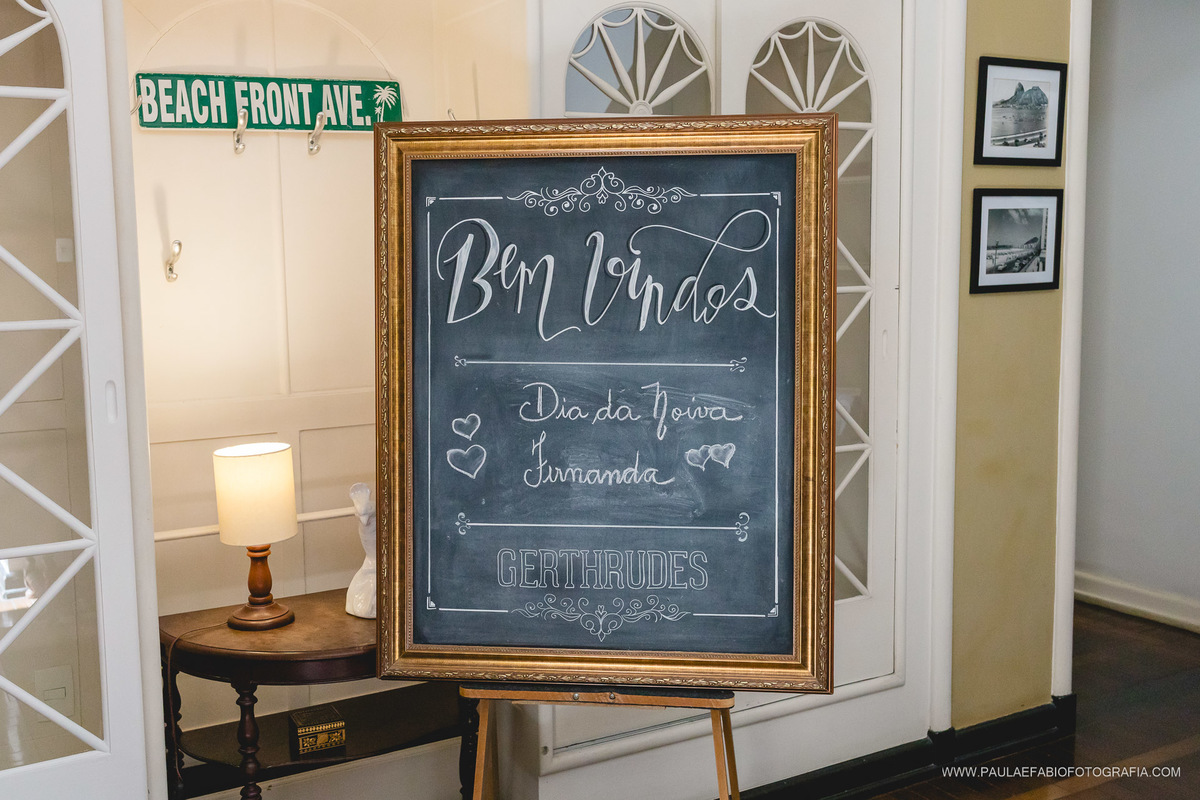 BEACH FRONT AVE.
Bem Vindos
Dia da Noiva
Fernanda
GERTHRUDES
WWW.PAULAEFABIOFOTOGRAFIA.COM